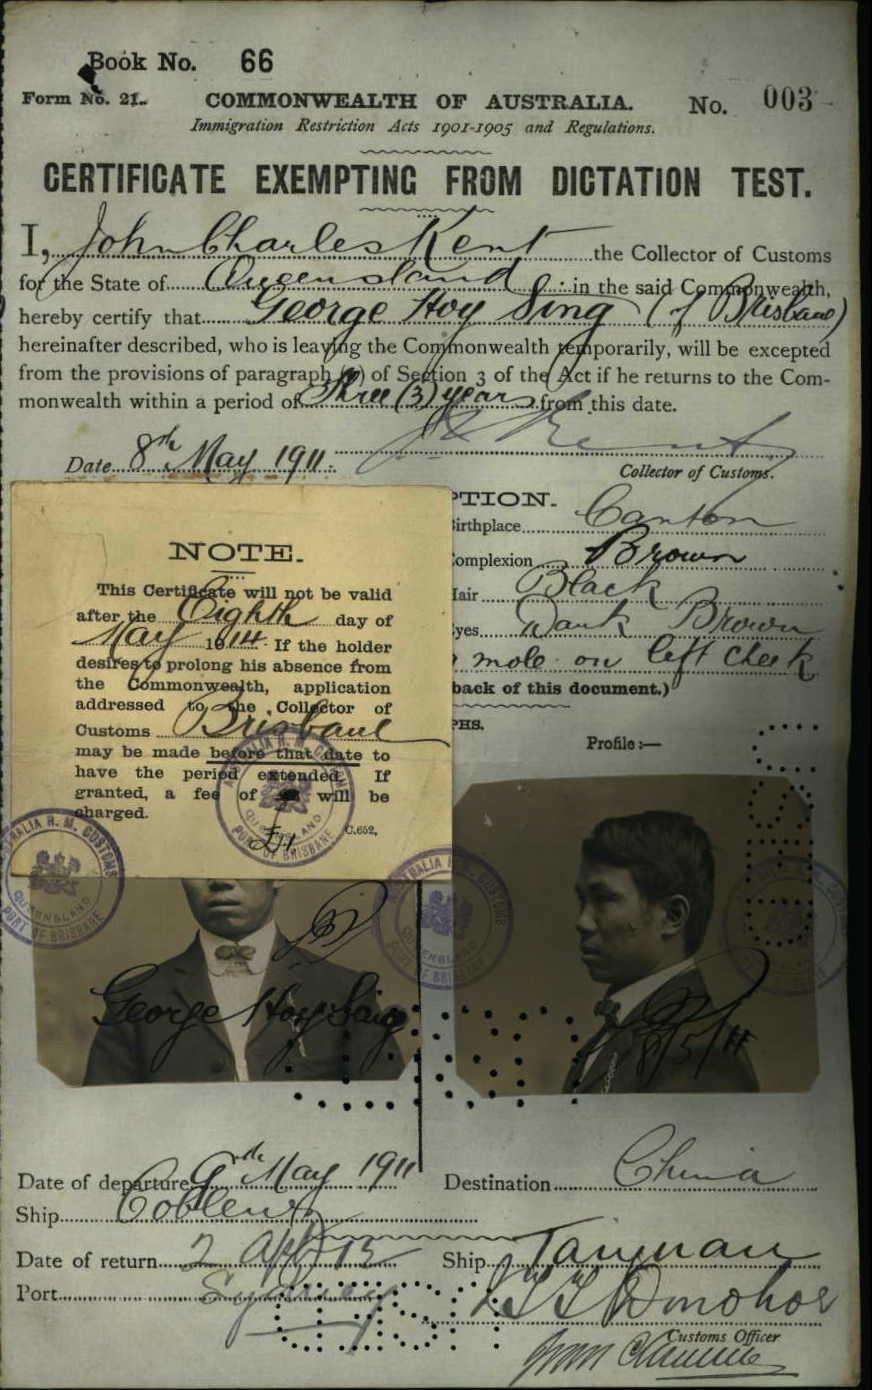 Book No. 66
Form No. 21. COMMONWEALTH OF AUSTRALIA. No. 003
Immigration Restriction Acts 1901-1905 and Regulations.
CERTIFICATE EXEMPTING FROM DICTATION TEST.
I, John Charles Kent the Collector of Customs
for the State of Queensland in the said Commonwealth,
hereby certify that George Hoy Sing (of Brisbane)
hereinafter described, who is leaving the Commonwealth temporarily, will be excepted
from the provisions of paragraph (a) of Section 3 of the Act if he returns to the Com-
monwealth within a period of Three (3) years from this date.
Date 8th May 1911.
Collector of Customs.
PTION.
Birthplace Canton
Complexion Brown
Hair Black
Eyes Dark Brown
mole on left cheek
back of this document.)
PHS.
Profile :—
NOTE.
This Certificate will not be valid
after the Eighth day of
May 1914. If the holder
desires to prolong his absence from
the Commonwealth, application
addressed to the Collector of
Customs Brisbane
may be made before that date to
have the period extended. If
granted, a fee of £1 will be
charged.
C.652.
AUSTRALIA H. M. CUSTOMS
QUEENSLAND
PORT OF BRISBANE
George Hoy Sing
8/5/11
Date of departure 9th May 1911 Destination China
Ship Coblenz
Date of return 2 Apl 13 Ship Taiyuan
Port Sydney
Customs Officer